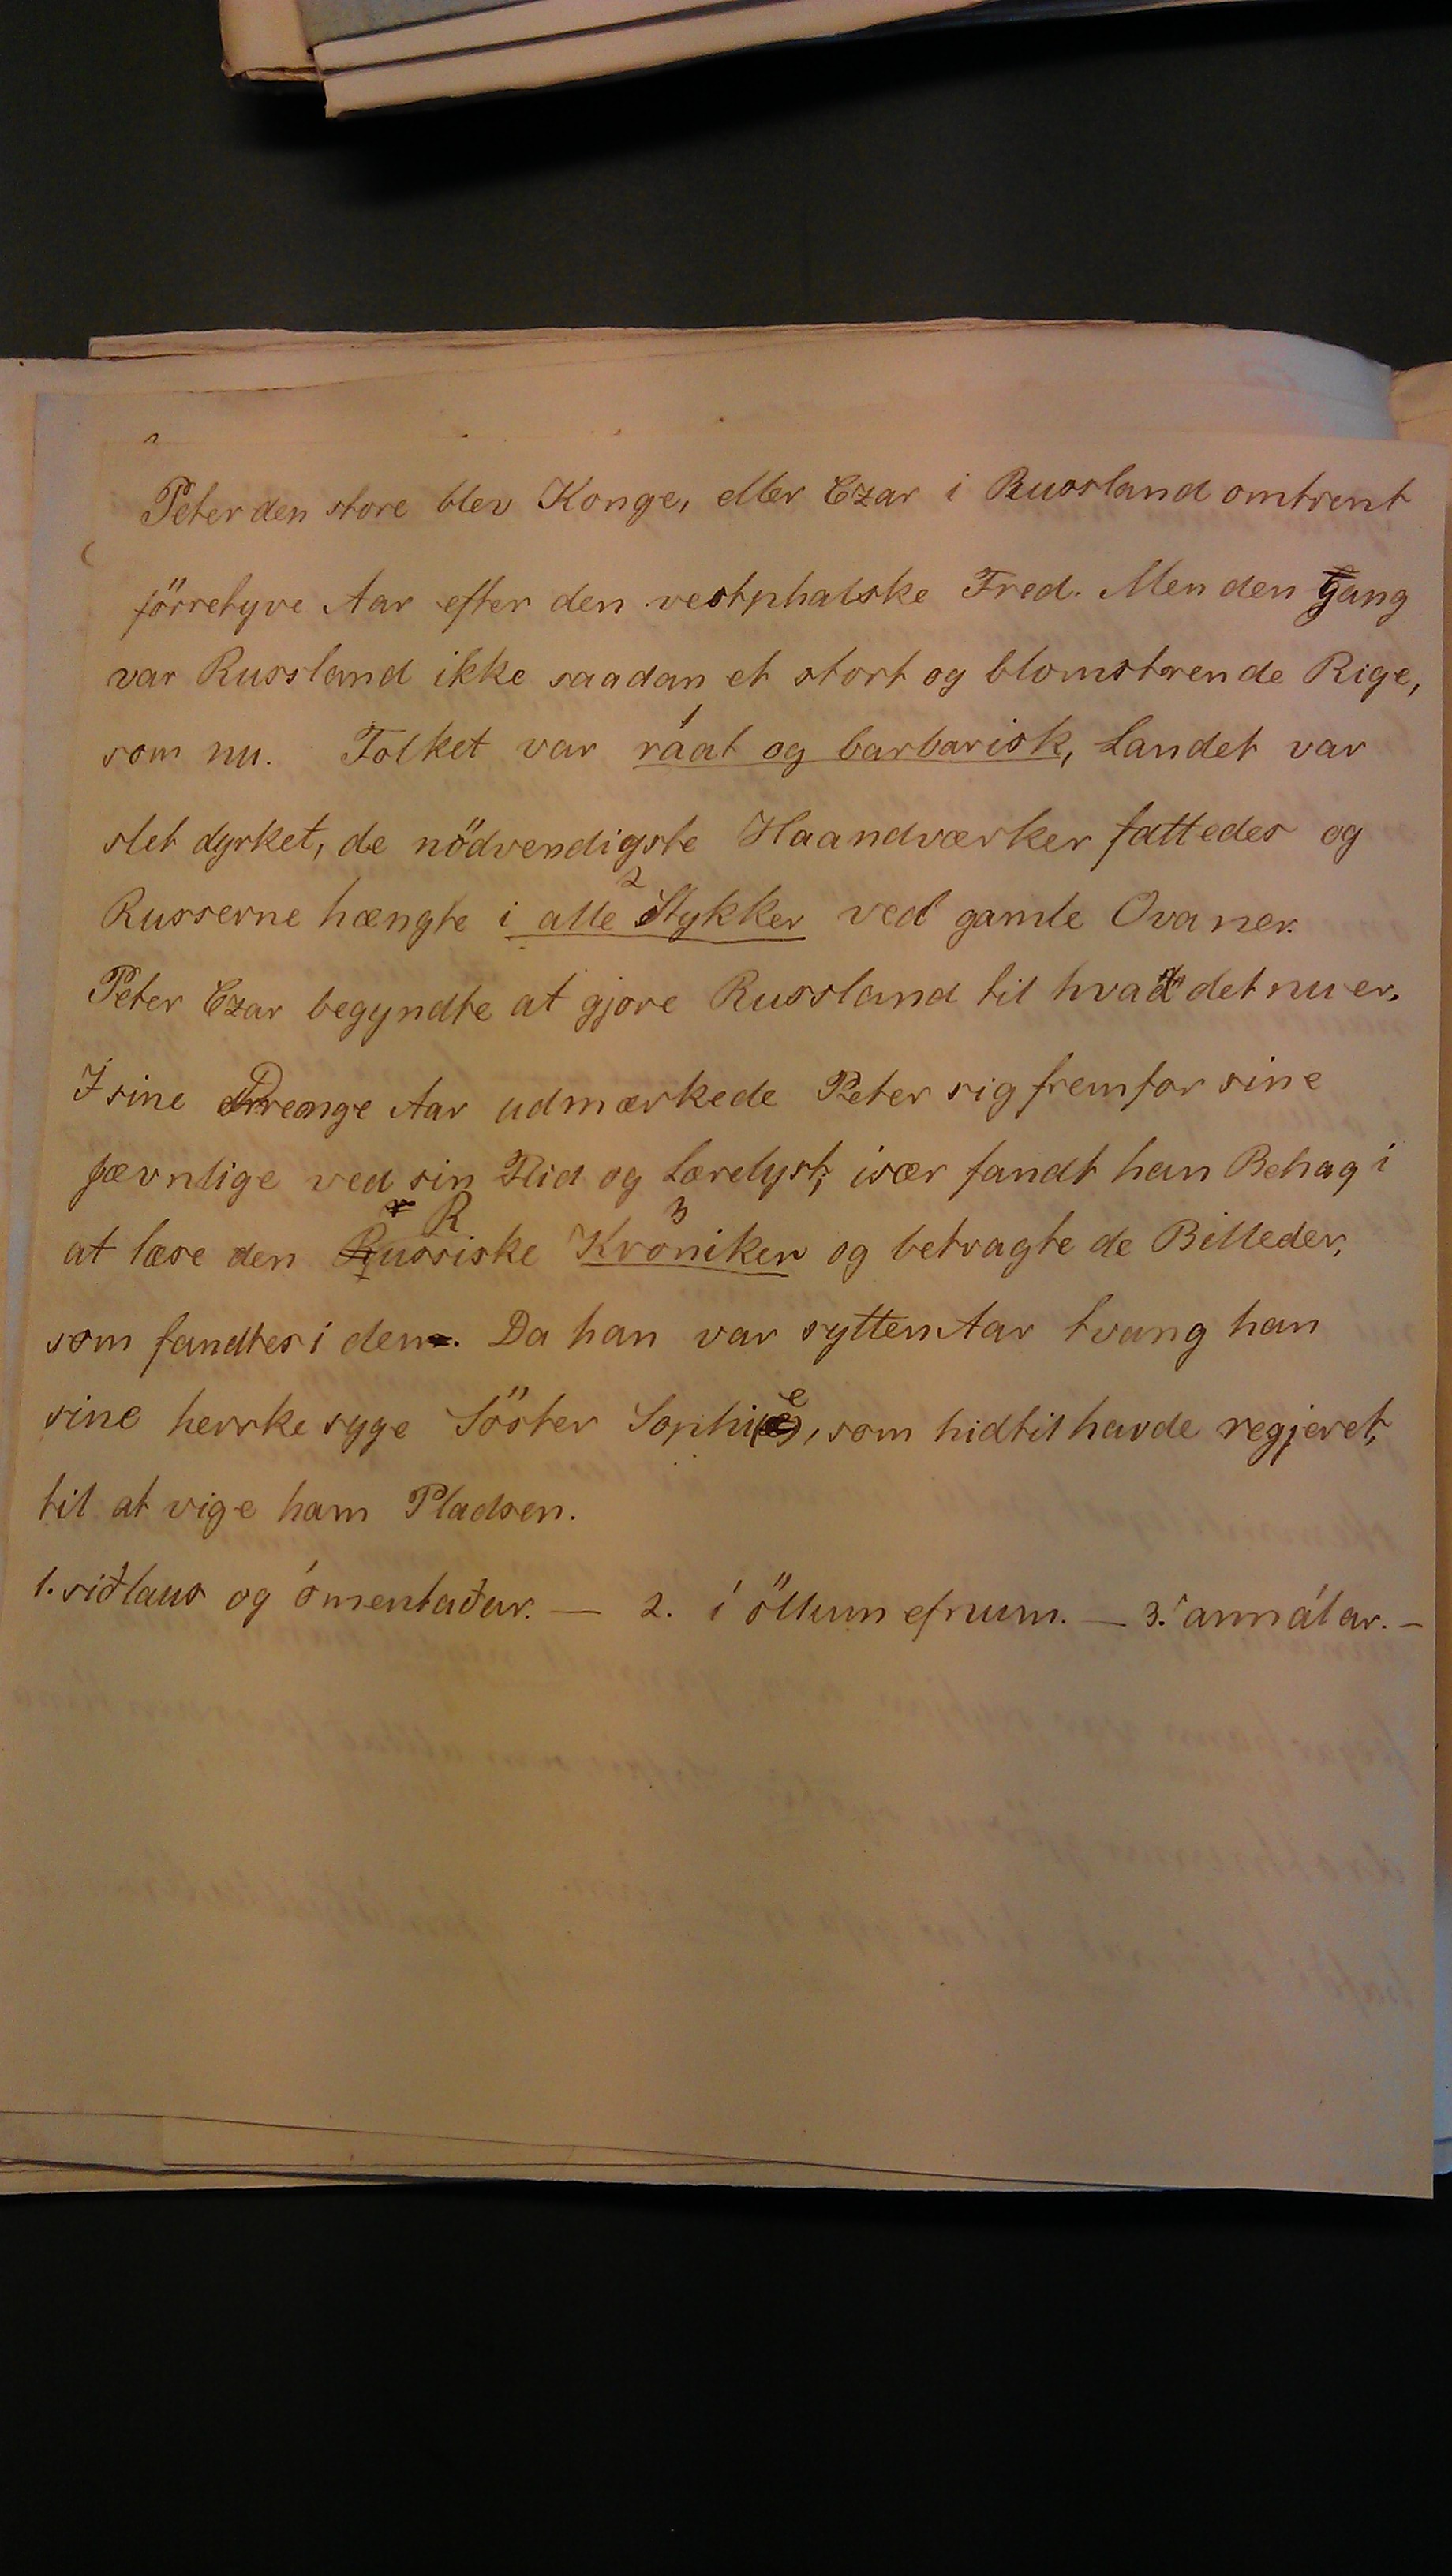 Peter den store blev Konge, eller Czar i Russland omtrent
förretyve Aar efter den vestphalske Fred. Men den Gang
var Russland ikke saadan et stort og blomstrende Rige,
som nu. Folket var 1 raat og barbarisk, Landet var
slet dyrket, de nödvendigste Haandværker fattedes og
Russerne hængte i alle 2 Stykker ved gamle Ovaner.
Peter Czar begyndte at gjore Russland til hvad det nu er.
I sine Drenge Aar udmærkede Peter sig fremfor sine
jævnlige ved sin Flid og Lærelyst, især fandt han Behag i
at læse den Russiske 3 Kröniker og betragte de Billeder,
som fandtes i den. Da han var sytten Aar tvang han
sine herske syge Söster Sophie, som hidtil havde regjeret,
til at vige ham Pladsen.
1. siðlaus og ómentaður. — 2. í öllum efnum. — 3. annálar. —